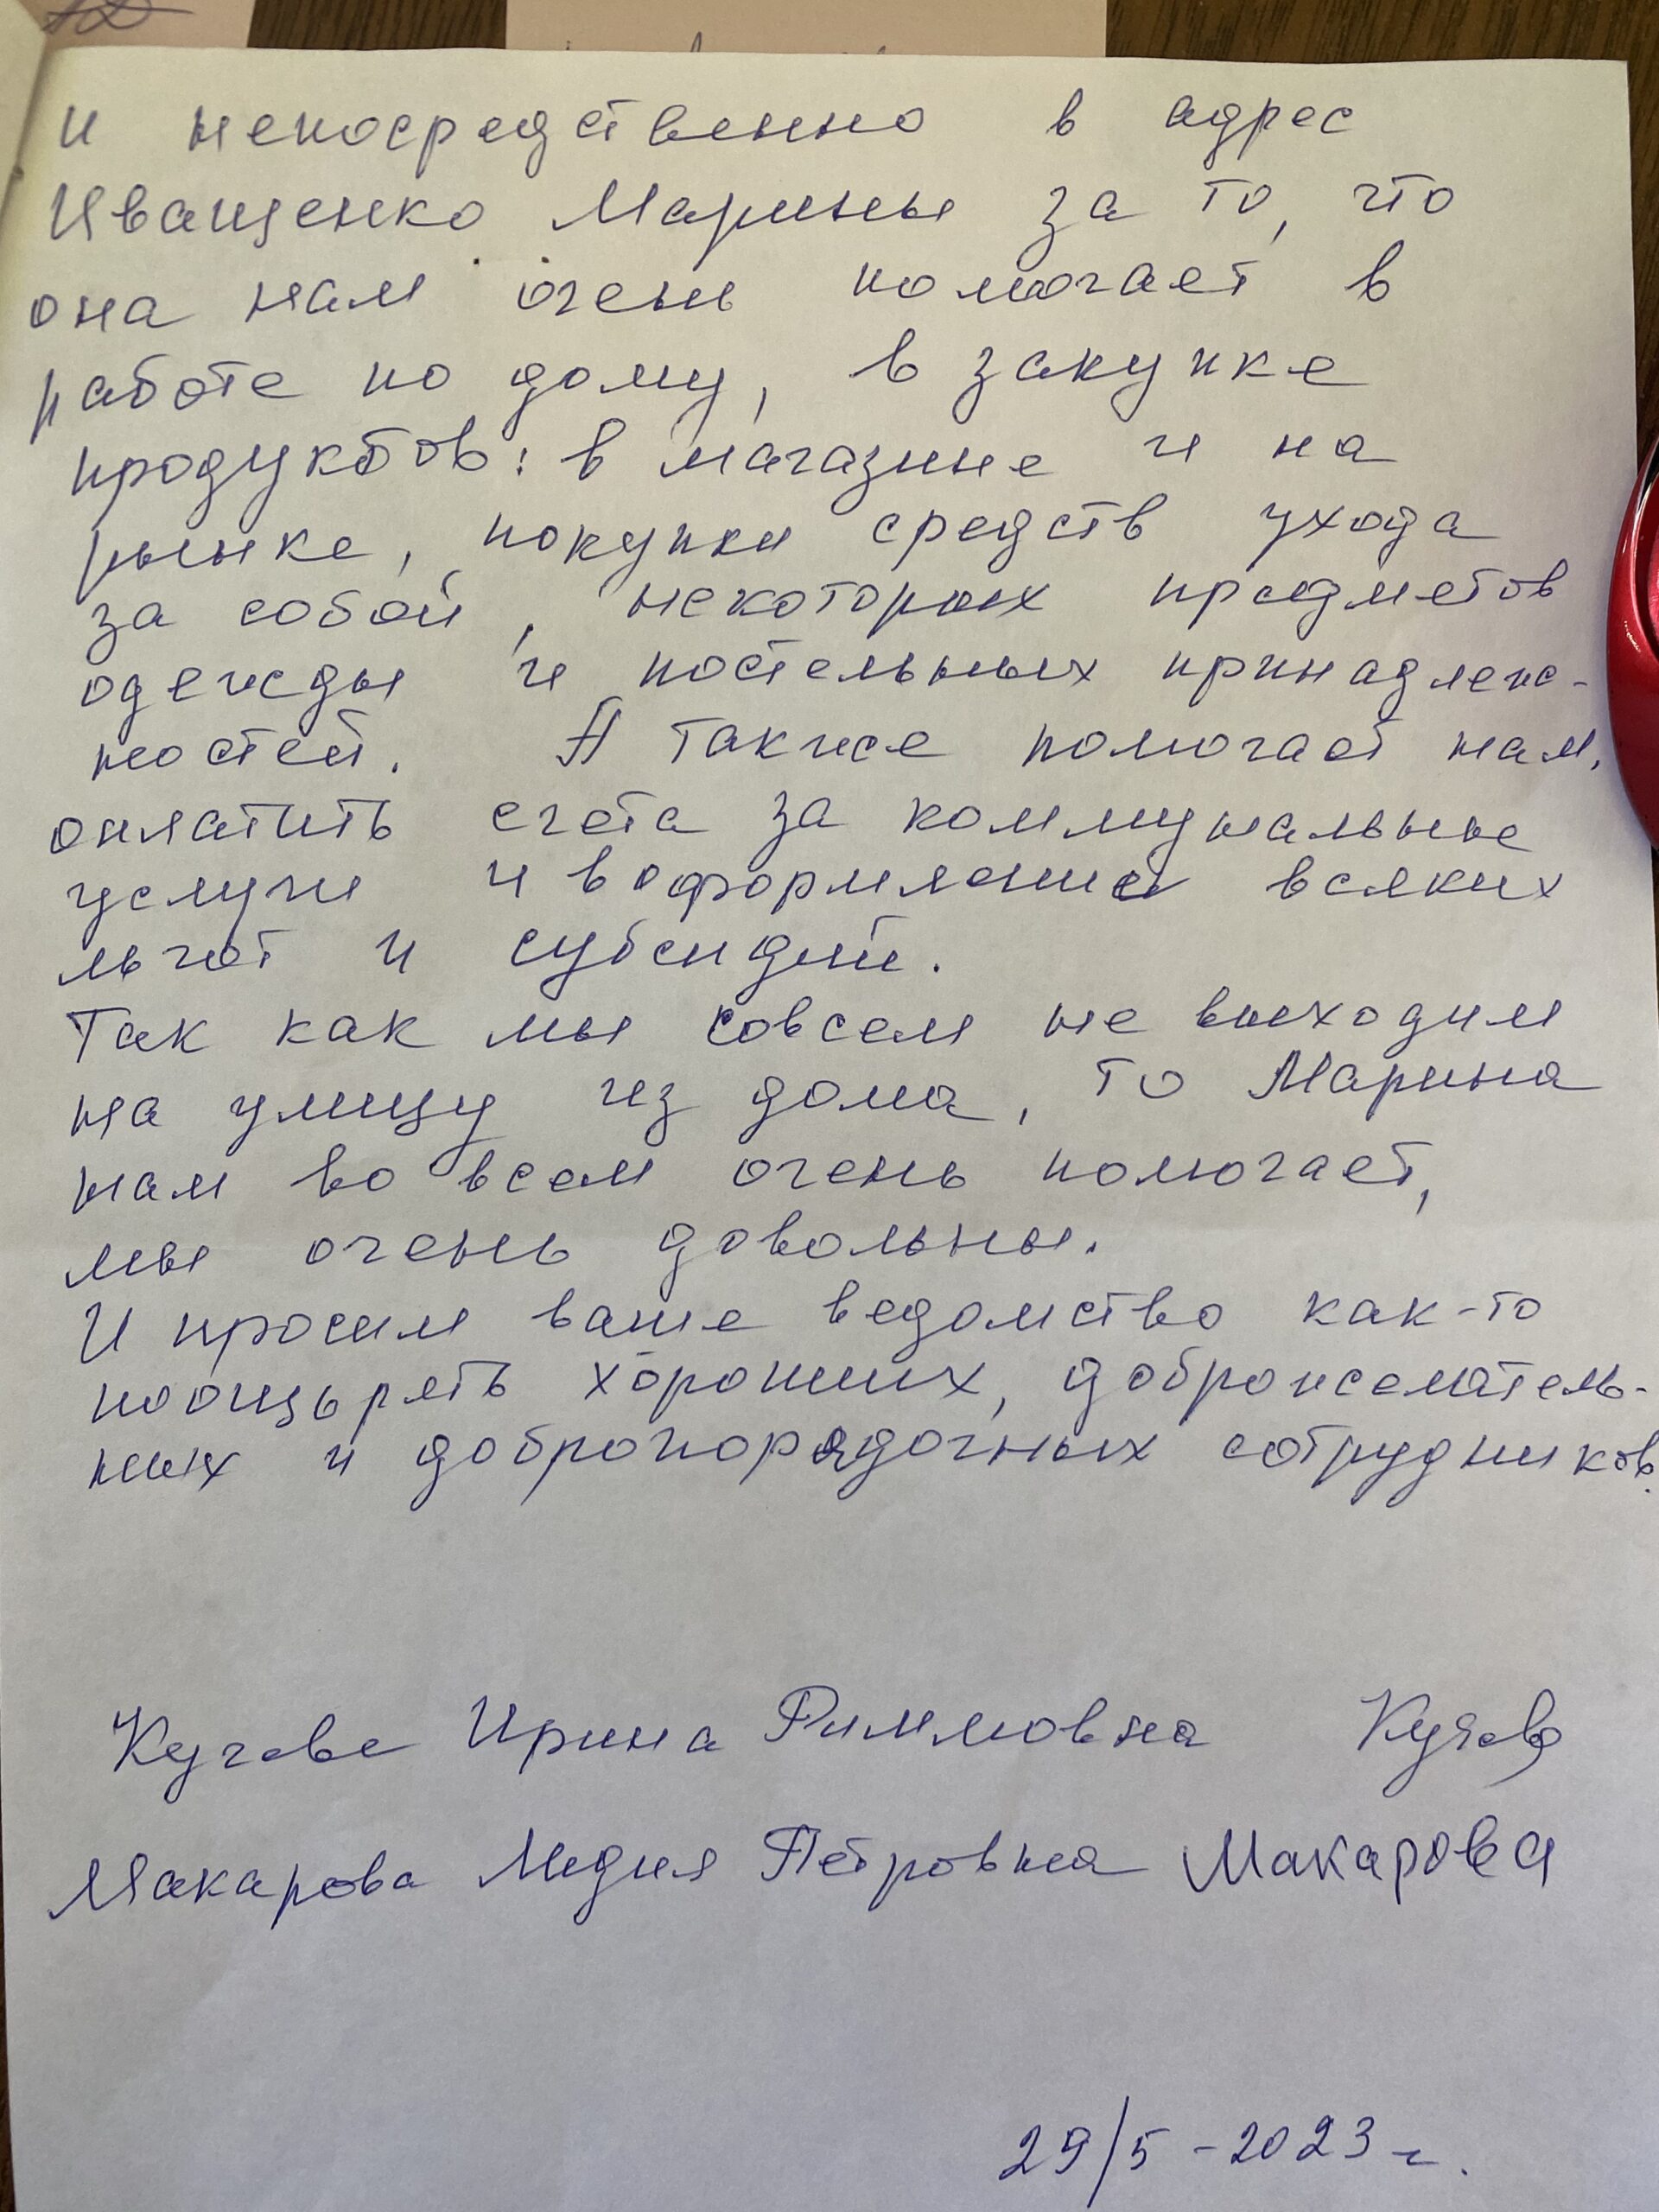 и непосредственно в адрес
Иващенко Марины за то, что
она нам очень помогает в
работе по дому, в закупке
продуктов: в магазине и на
рынке, покупки средств ухода
за собой, некоторых предметов
одежды и постельных принадлеж-
ностей. А также помогает нам,
оплатить счета за коммунальные
услуги и в оформлении всяких
льгот и субсидий.
Так как мы совсем не выходим
на улицу из дома, то Марина
нам во всем очень помогает,
мы очень довольны.
И просим ваше ведомство как-то
поощьрять хороших, доброжелатель-
ных и добропорядочных сотрудников.
Ирина Риммовна
Макарова Лидия Петровна Макарова
29/5-2023 г.